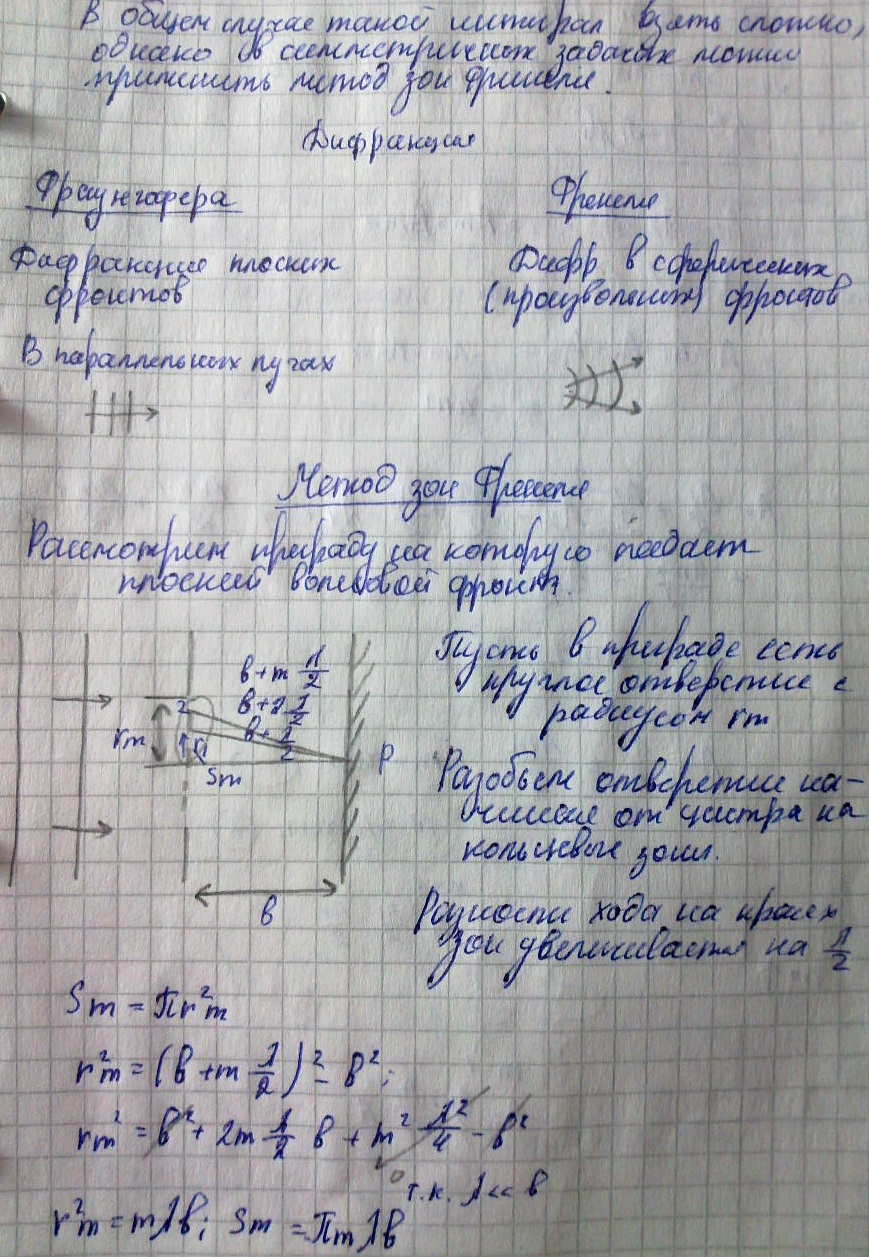 В общем случае такой интеграл взять сложно,
однако в симметричных задачах можно
применить метод зон Френеля.
Дифракция
Фраунгофера
Френеля
Дифракция плоских
фронтов
Дифр. в сферических
(произвольных) фронтов
В параллельных лучах
Метод зон Френеля
Рассмотрим преграду на которую падает
плоский волновой фронт.
b + m λ/2
b + 2 λ/2
b + λ/2
2
1
rm
Sm
P
b
Пусть в преграде есть
круглое отверстие с
радиусом rm
Разобьем отверстие на-
чиная от центра на
кольцевые зоны.
Разности хода на краях
зон увеличивается на λ/2
Sm = Πr²m
r²m = (b + m λ/2)² - b²;
rm² = b² + 2m λ/2 b + m² λ²/4 - b²
0
т.к. λ << b
r²m = mλb; Sm = Πmλb